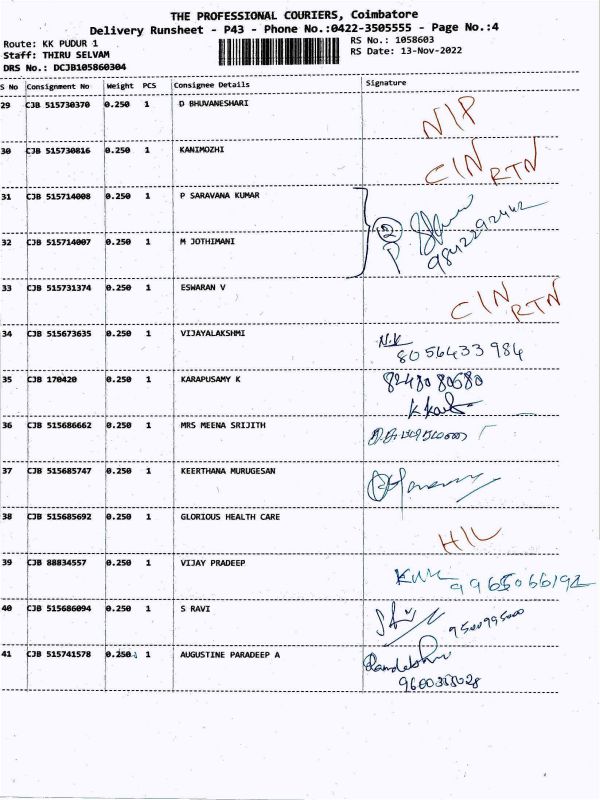 THE PROFESSIONAL COURIERS, Coimbatore
Delivery Runsheet - P43 - Phone No.:0422-3505555 - Page No.:4
Route: KK PUDUR 1
RS No.: 1058603
Staff: THIRU SELVAM
RS Date: 13-Nov-2022
DRS No.: DCJB105860304
S No Consignment No Weight PCS Consignee Details Signature
29 CJB 515730370 0.250 1 D BHUVANESHARI N/P
30 CJB 515730816 0.250 1 KANIMOZHI C/N RTN
31 CJB 515714008 0.250 1 P SARAVANA KUMAR
2
32 CJB 515714007 0.250 1 M JOTHIMANI
33 CJB 515731374 0.250 1 ESWARAN V C/N RTN
34 CJB 515673635 0.250 1 VIJAYALAKSHMI N.K
8056433984
35 CJB 170420 0.250 1 KARAPUSAMY K
36 CJB 515686662 0.250 1 MRS MEENA SRIJITH
37 CJB 515685747 0.250 1 KEERTHANA MURUGESAN
38 CJB 515685692 0.250 1 GLORIOUS HEALTH CARE
39 CJB 88834557 0.250 1 VIJAY PRADEEP
40 CJB 515686094 0.250 1 S RAVI
9500995000
41 CJB 515741578 0.250 1 AUGUSTINE PARADEEP A